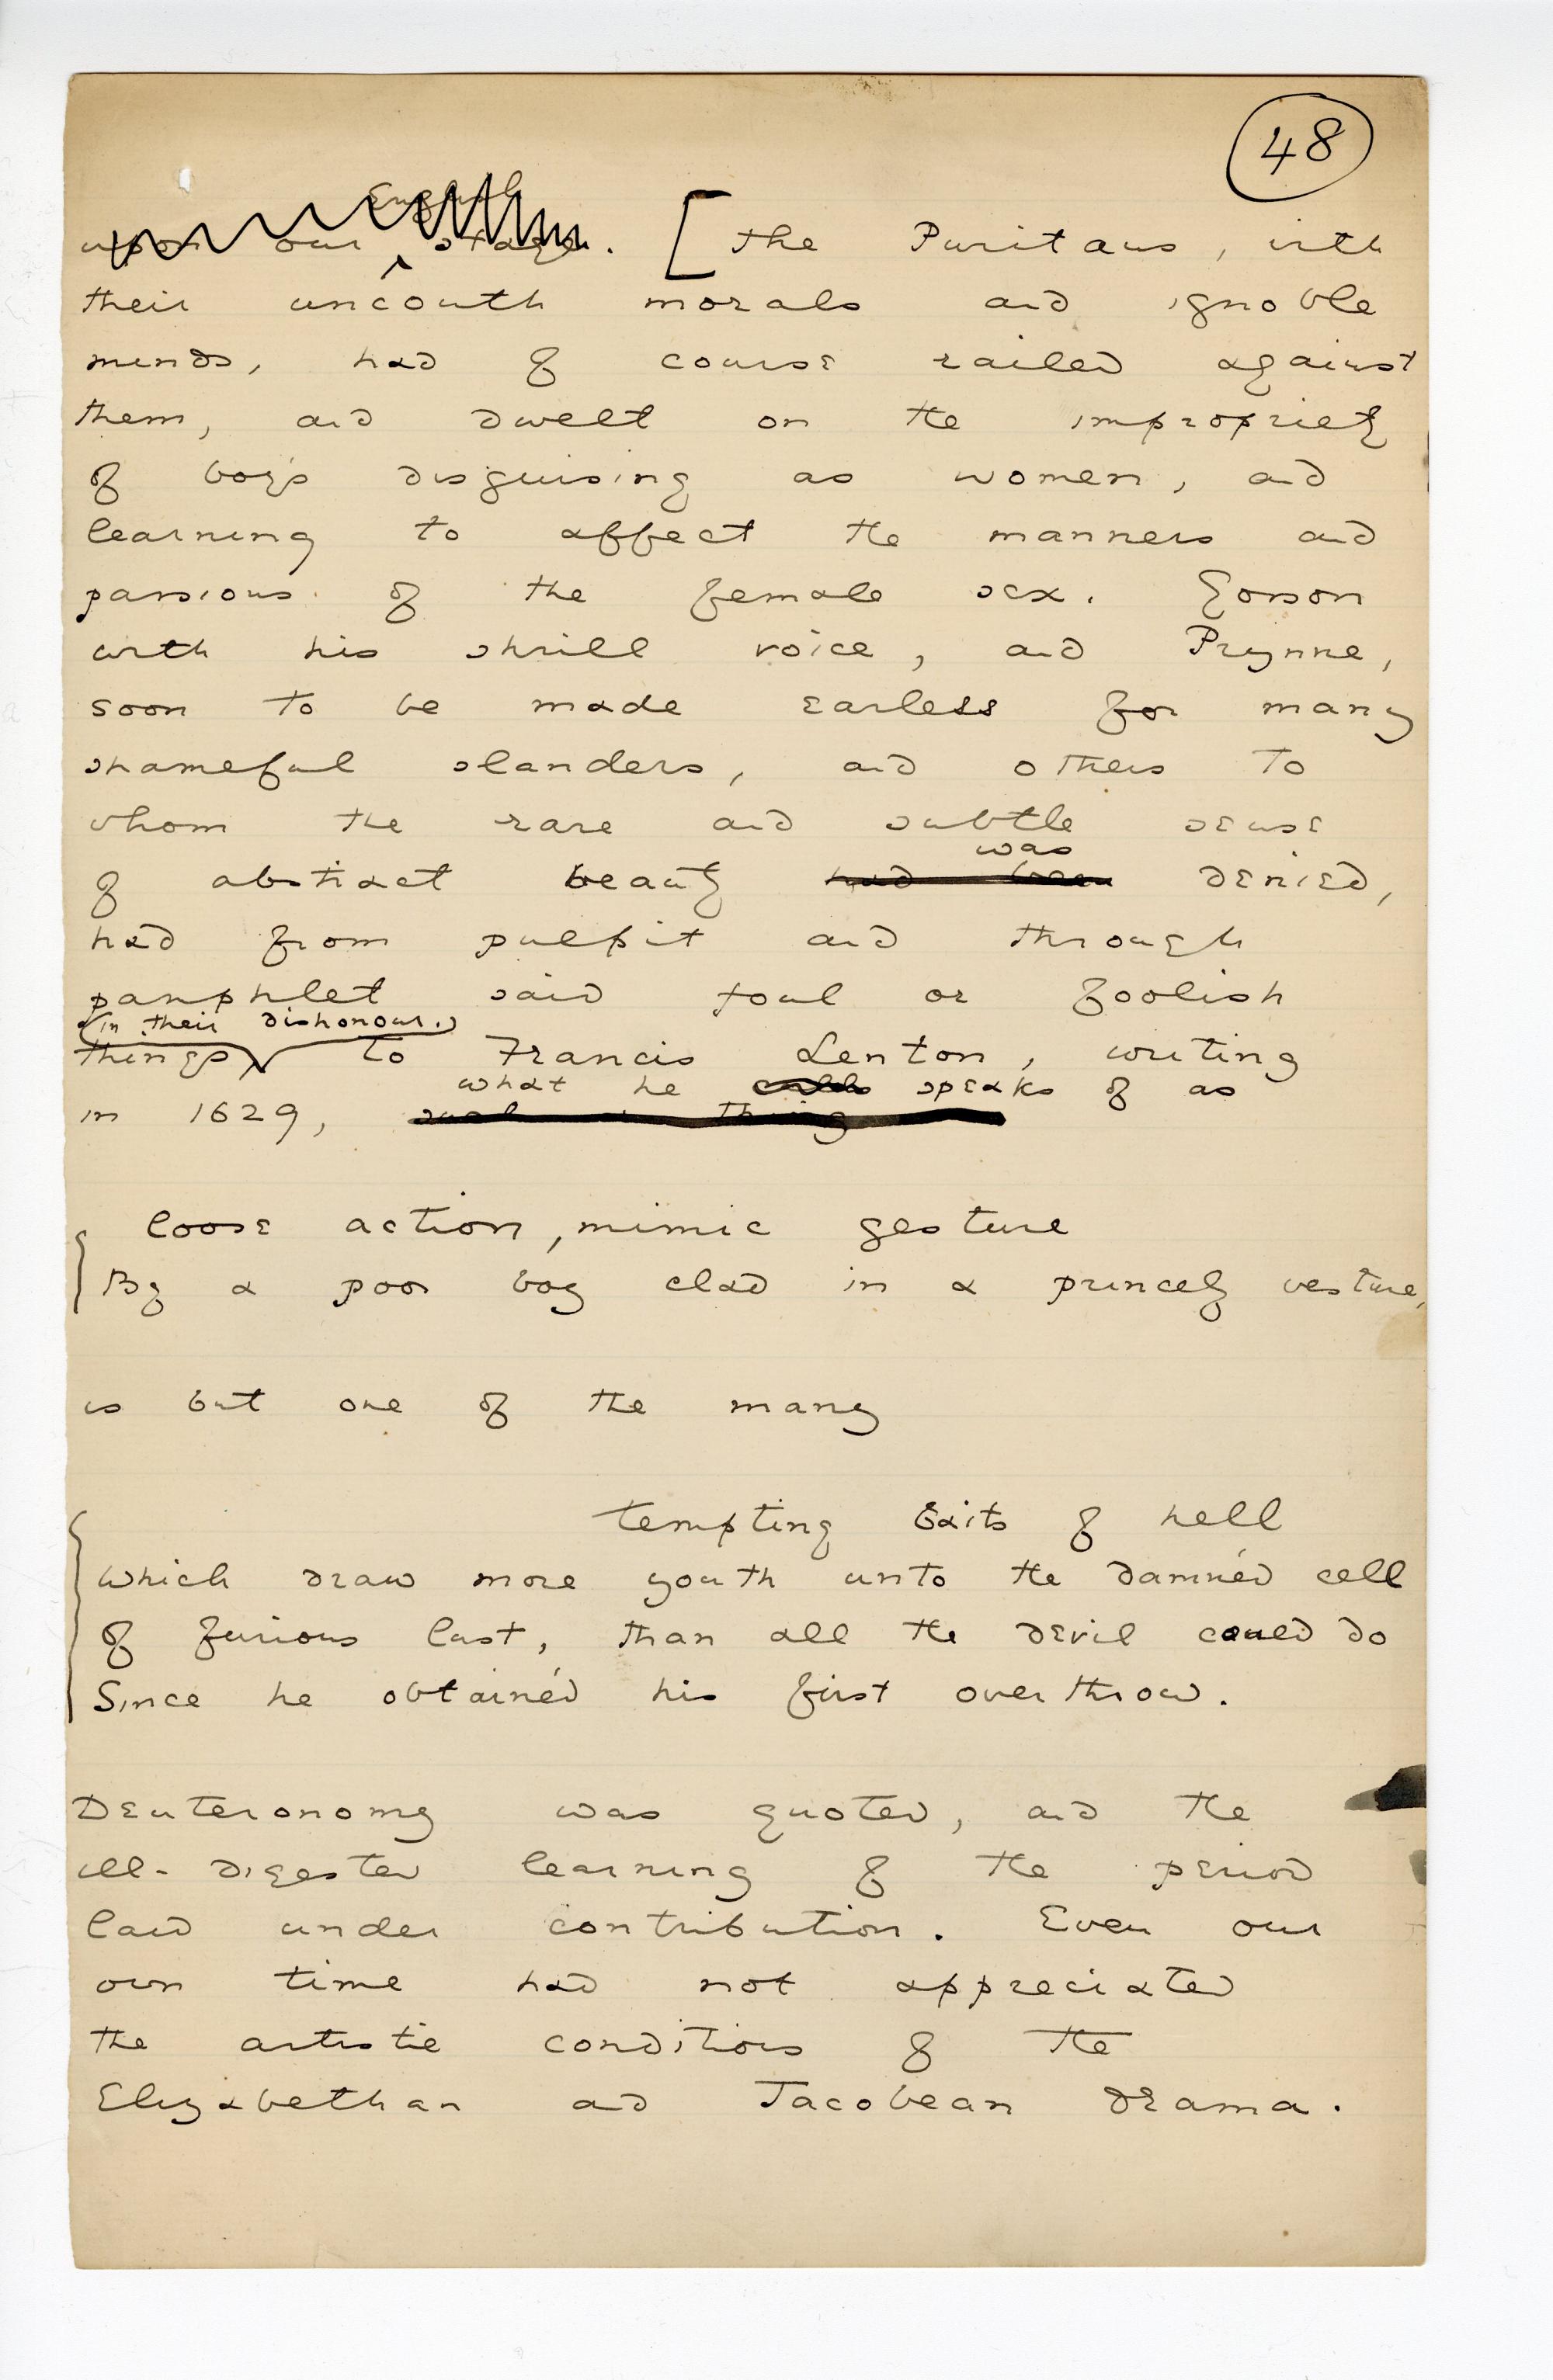 48
English
upon our stage. [The Puritans, with
their uncouth morals and ignoble
minds, had of course railed against
them, and dwelt on the impropriety
of boys disguising as women, and
learning to affect the manners and
passions of the female sex. Gosson
with his shrill voice, and Prynne,
soon to be made earless for many
shameful slanders, and others to
whom the rare and subtle sense
was
of abstract beauty had been denied,
had from pulpit and through
pamphlet said foul or foolish
(in their dishonour.)
things to Francis Lenton, writing
what he calls speaks of as
in 1629, such a thing
loose action, mimic gesture
By a poor boy clad in a princely vesture,
is but one of the many
tempting baits of hell
Which draw more youth unto the damnéd cell
Of furious lust, than all the devil could do
Since he obtainéd his first overthrow.
Deuteronomy was quoted, and the
ill-digested learning of the period
laid under contribution. Even our
own time had not appreciated
the artistic conditions of the
Elizabethan and Jacobean drama.